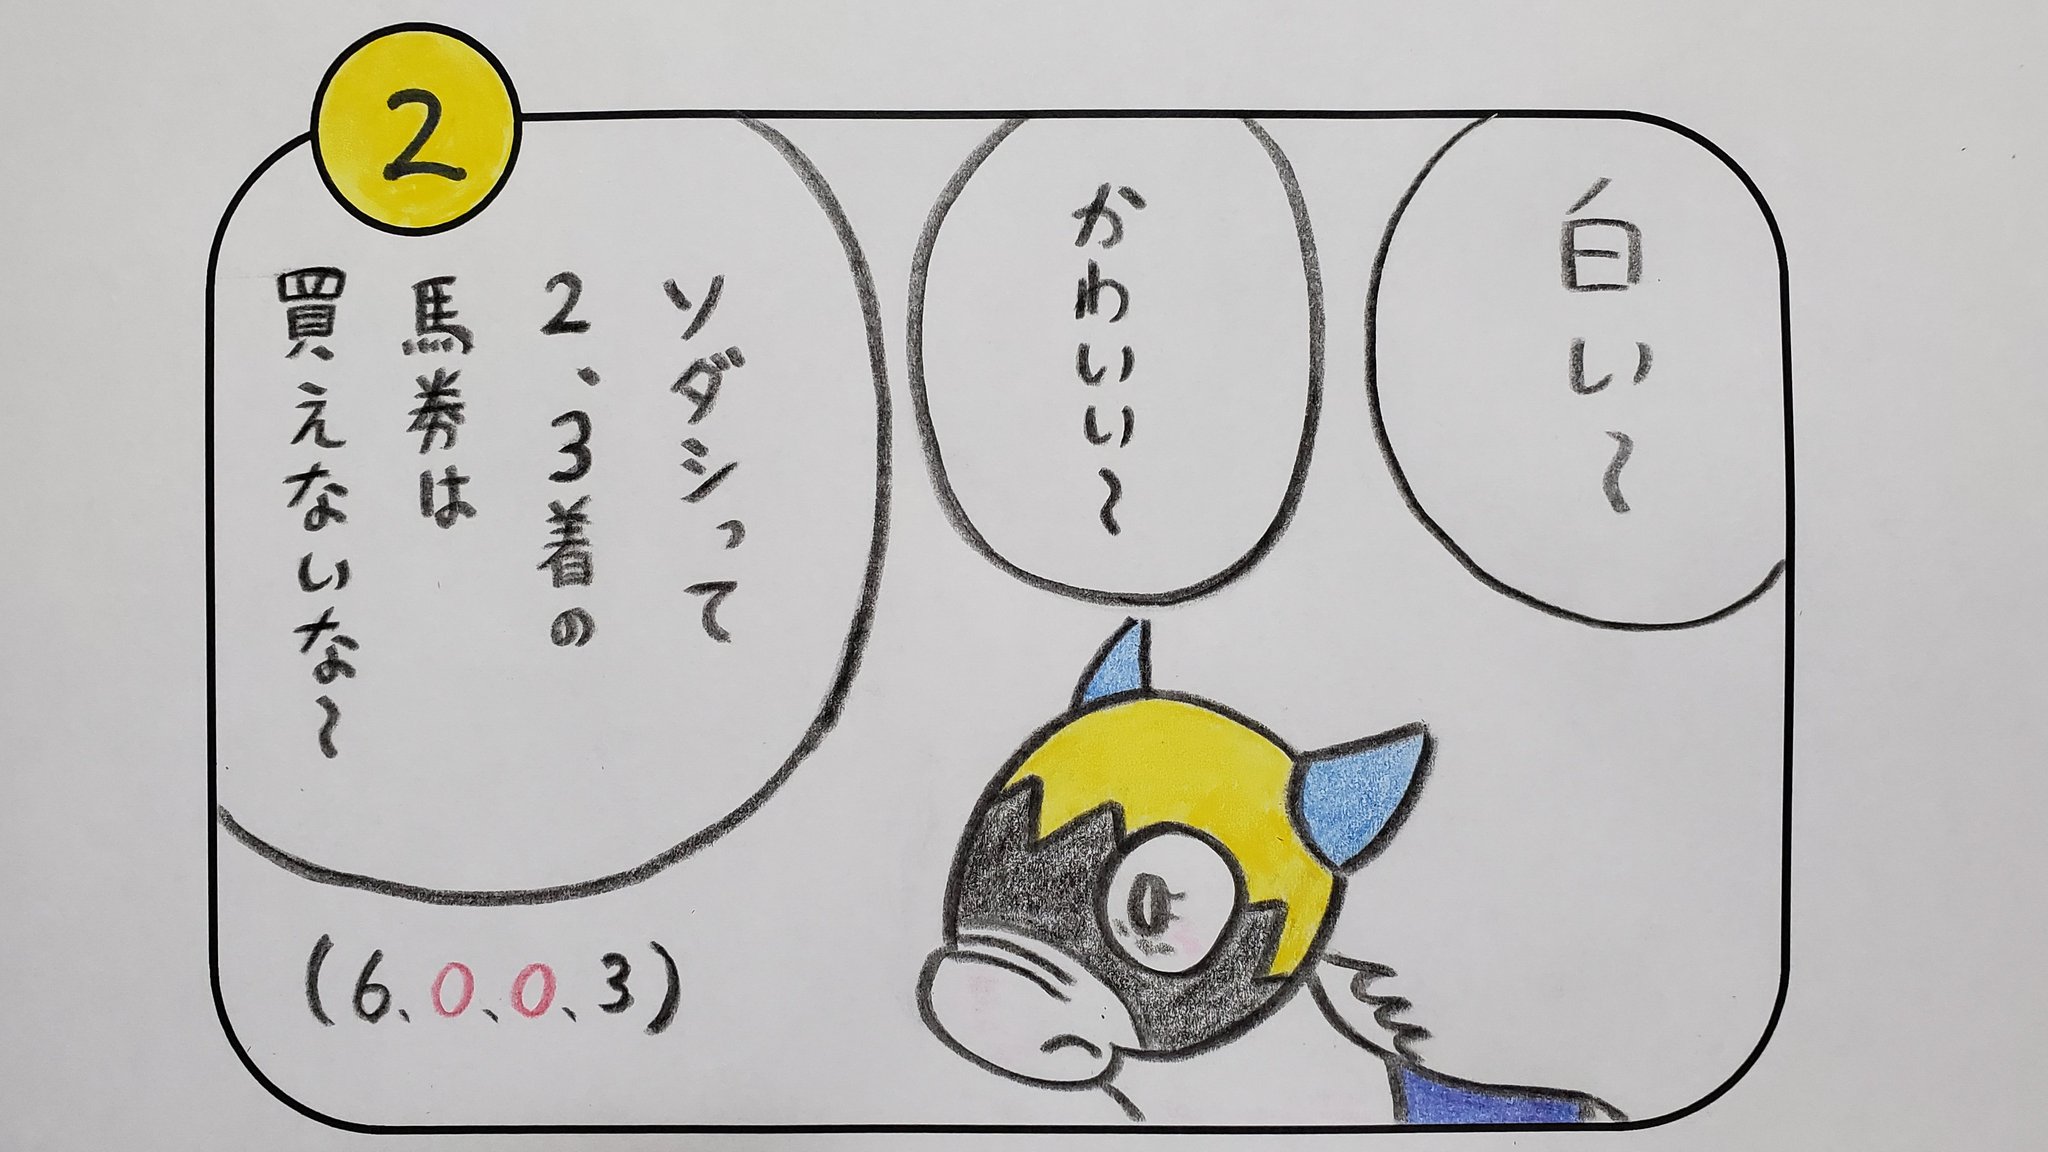 2
白い〜
かわいい〜
ソダシって
2、3着の
馬券は
買えないな〜
(6、0、0、3)